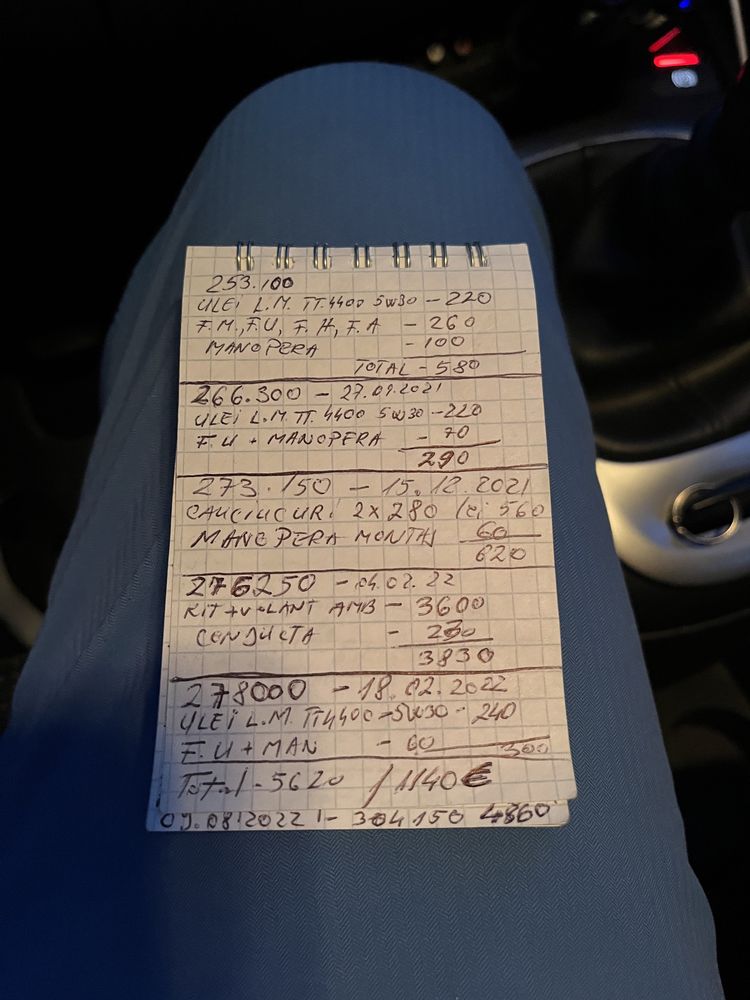 253.100
ULEI L.M. TT.4400 5W30 - 220
F.M., F.U, F.H, F.A - 260
MANOPERA - 100
TOTAL - 580
266.300 - 27.09.2021
ULEI L.M. TT. 4400 5W30 - 220
F.U + MANOPERA - 70
290
273.150 - 15.12.2021
CAUCIUCURI 2x280 lei 560
MANOPERA MONTAJ 60
620
276250 - 04.02.22
KIT + VOLANT AMB - 3600
CONDUCTA - 230
3830
278000 - 18.02.2022
ULEI L.M. TT4400 - 5W30 - 240
F.U + MAN - 60 300
Total - 5620 / 1140€
09.08.2022 - 304150 4860